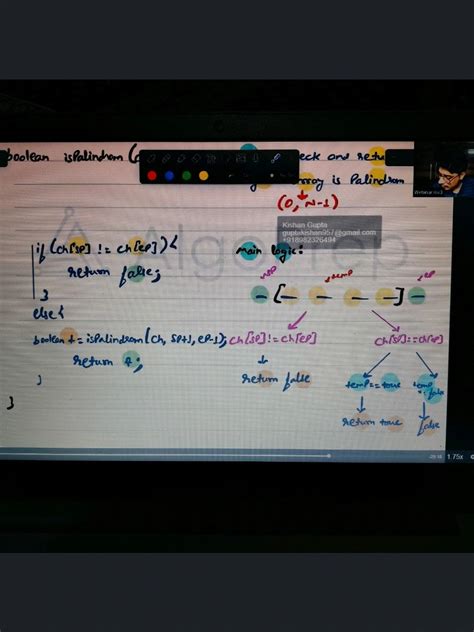 boolean isPalindrom(
eck and retu
rray is Palindrom
(0, N-1)
Kishan Gupta
guptakishan957@gmail.com
+918982326494
Algo
if(ch[sp] != ch[ep]){
return false;
}
else{
boolean t = isPalindrom(ch, sp+1, ep-1);
return t;
}
}
main logic:
sp
temp
ep
- [- - - -] -
ch[sp] != ch[ep]
ch[sp]==ch[ep]
return false
temp == true
temp
false
return true
false
1.75x